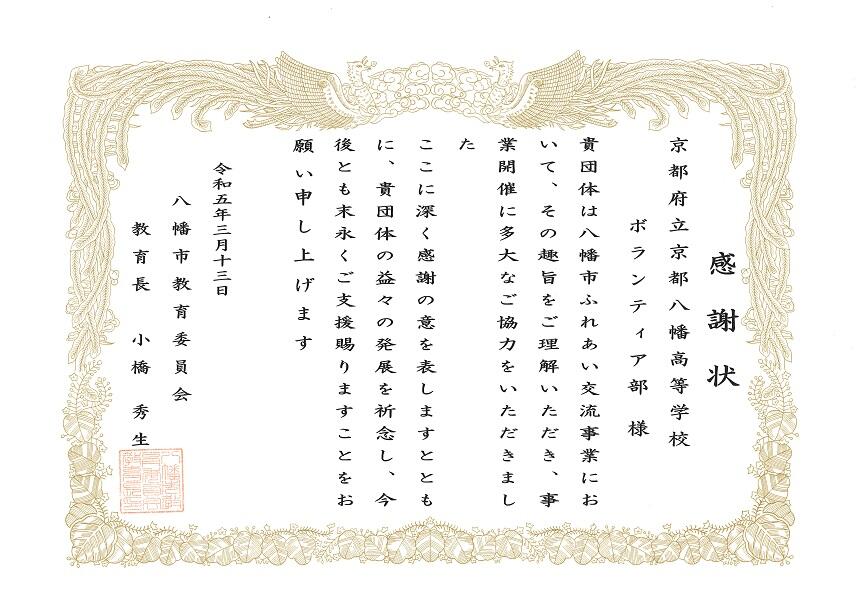 感謝状
京都府立京都八幡高等学校
ボランティア部 様
貴団体は八幡市ふれあい交流事業にお
いて、その趣旨をご理解いただき、事
業開催に多大なご協力をいただきまし
た
ここに深く感謝の意を表しますととも
に、貴団体の益々の発展を祈念し、今
後とも末永くご支援賜りますことをお
願い申し上げます
令和五年三月十三日
八幡市教育委員会
教育長 小橋 秀生